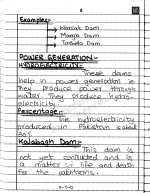 Examples:-
Warsak Dam
Mangla Dam
Tarbela Dam
POWER GENERATION:-
HYDROELECTRICITY:-
These dams
help in power generation as
They produce power through
water. They produce hydro-
electricity.
Percentage:-
The hydroelectricity
produced in Pakistan is about
30%.
Kalabagh Dam:-
This dam is
not yet constructed and is
a matter of life and death
for the politicians.